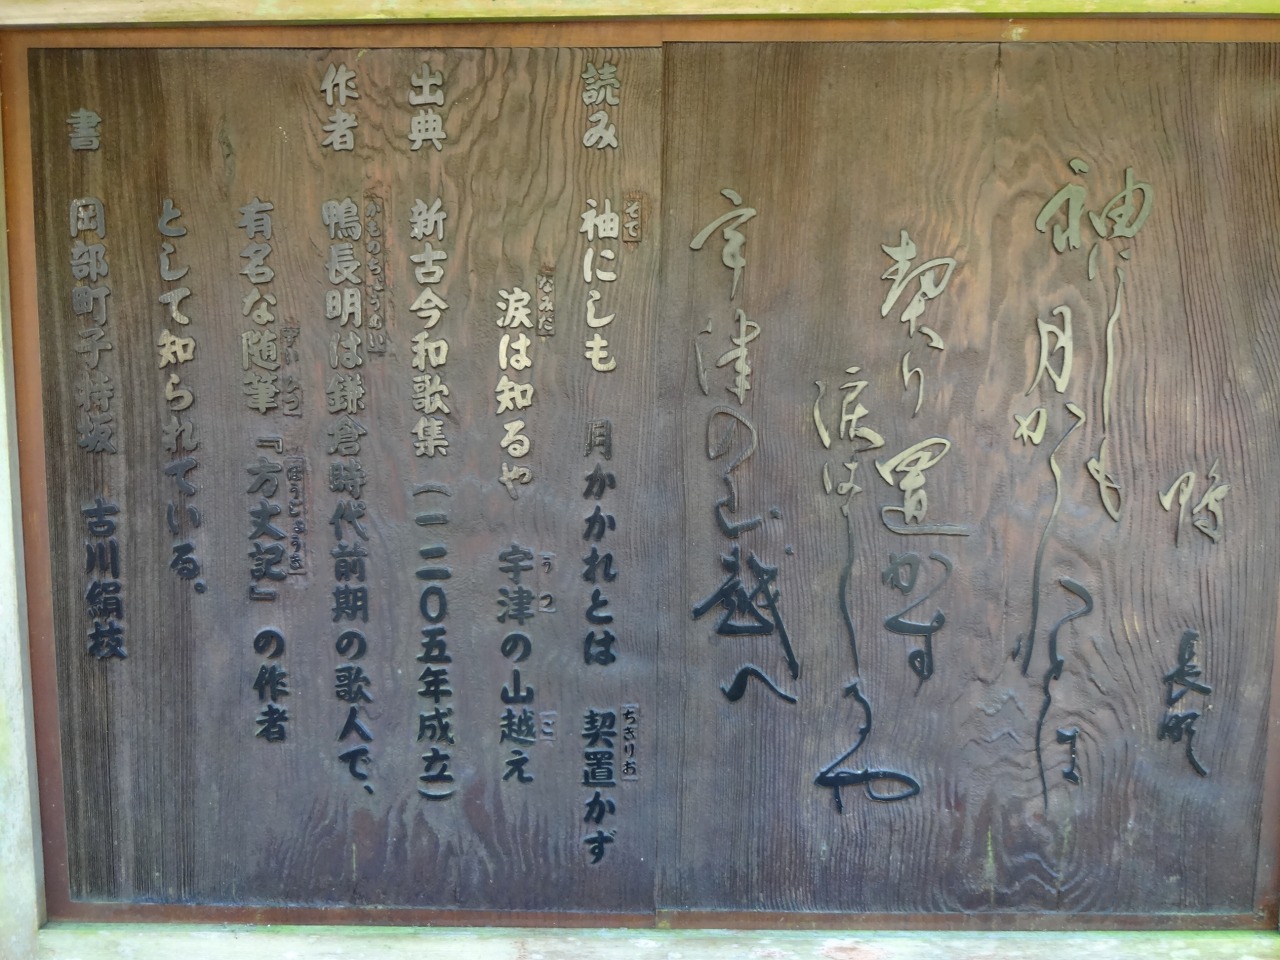 鴨 長明
袖にしも
月かゝれとは
契り置かず
涙はしるや
宇津の山越へ
読み 袖にしも 月かかれとは 契置かず
涙は知るや 宇津の山越え
出典 新古今和歌集(一二〇五年成立)
作者 鴨長明は鎌倉時代前期の歌人で、
有名な随筆『方丈記』の作者
として知られている。
書 岡部町子持坂 古川絹枝
そで
ちぎりお
なみだ
うつ
ご
かものちょうめい
ずいひつ
ほうじょうき